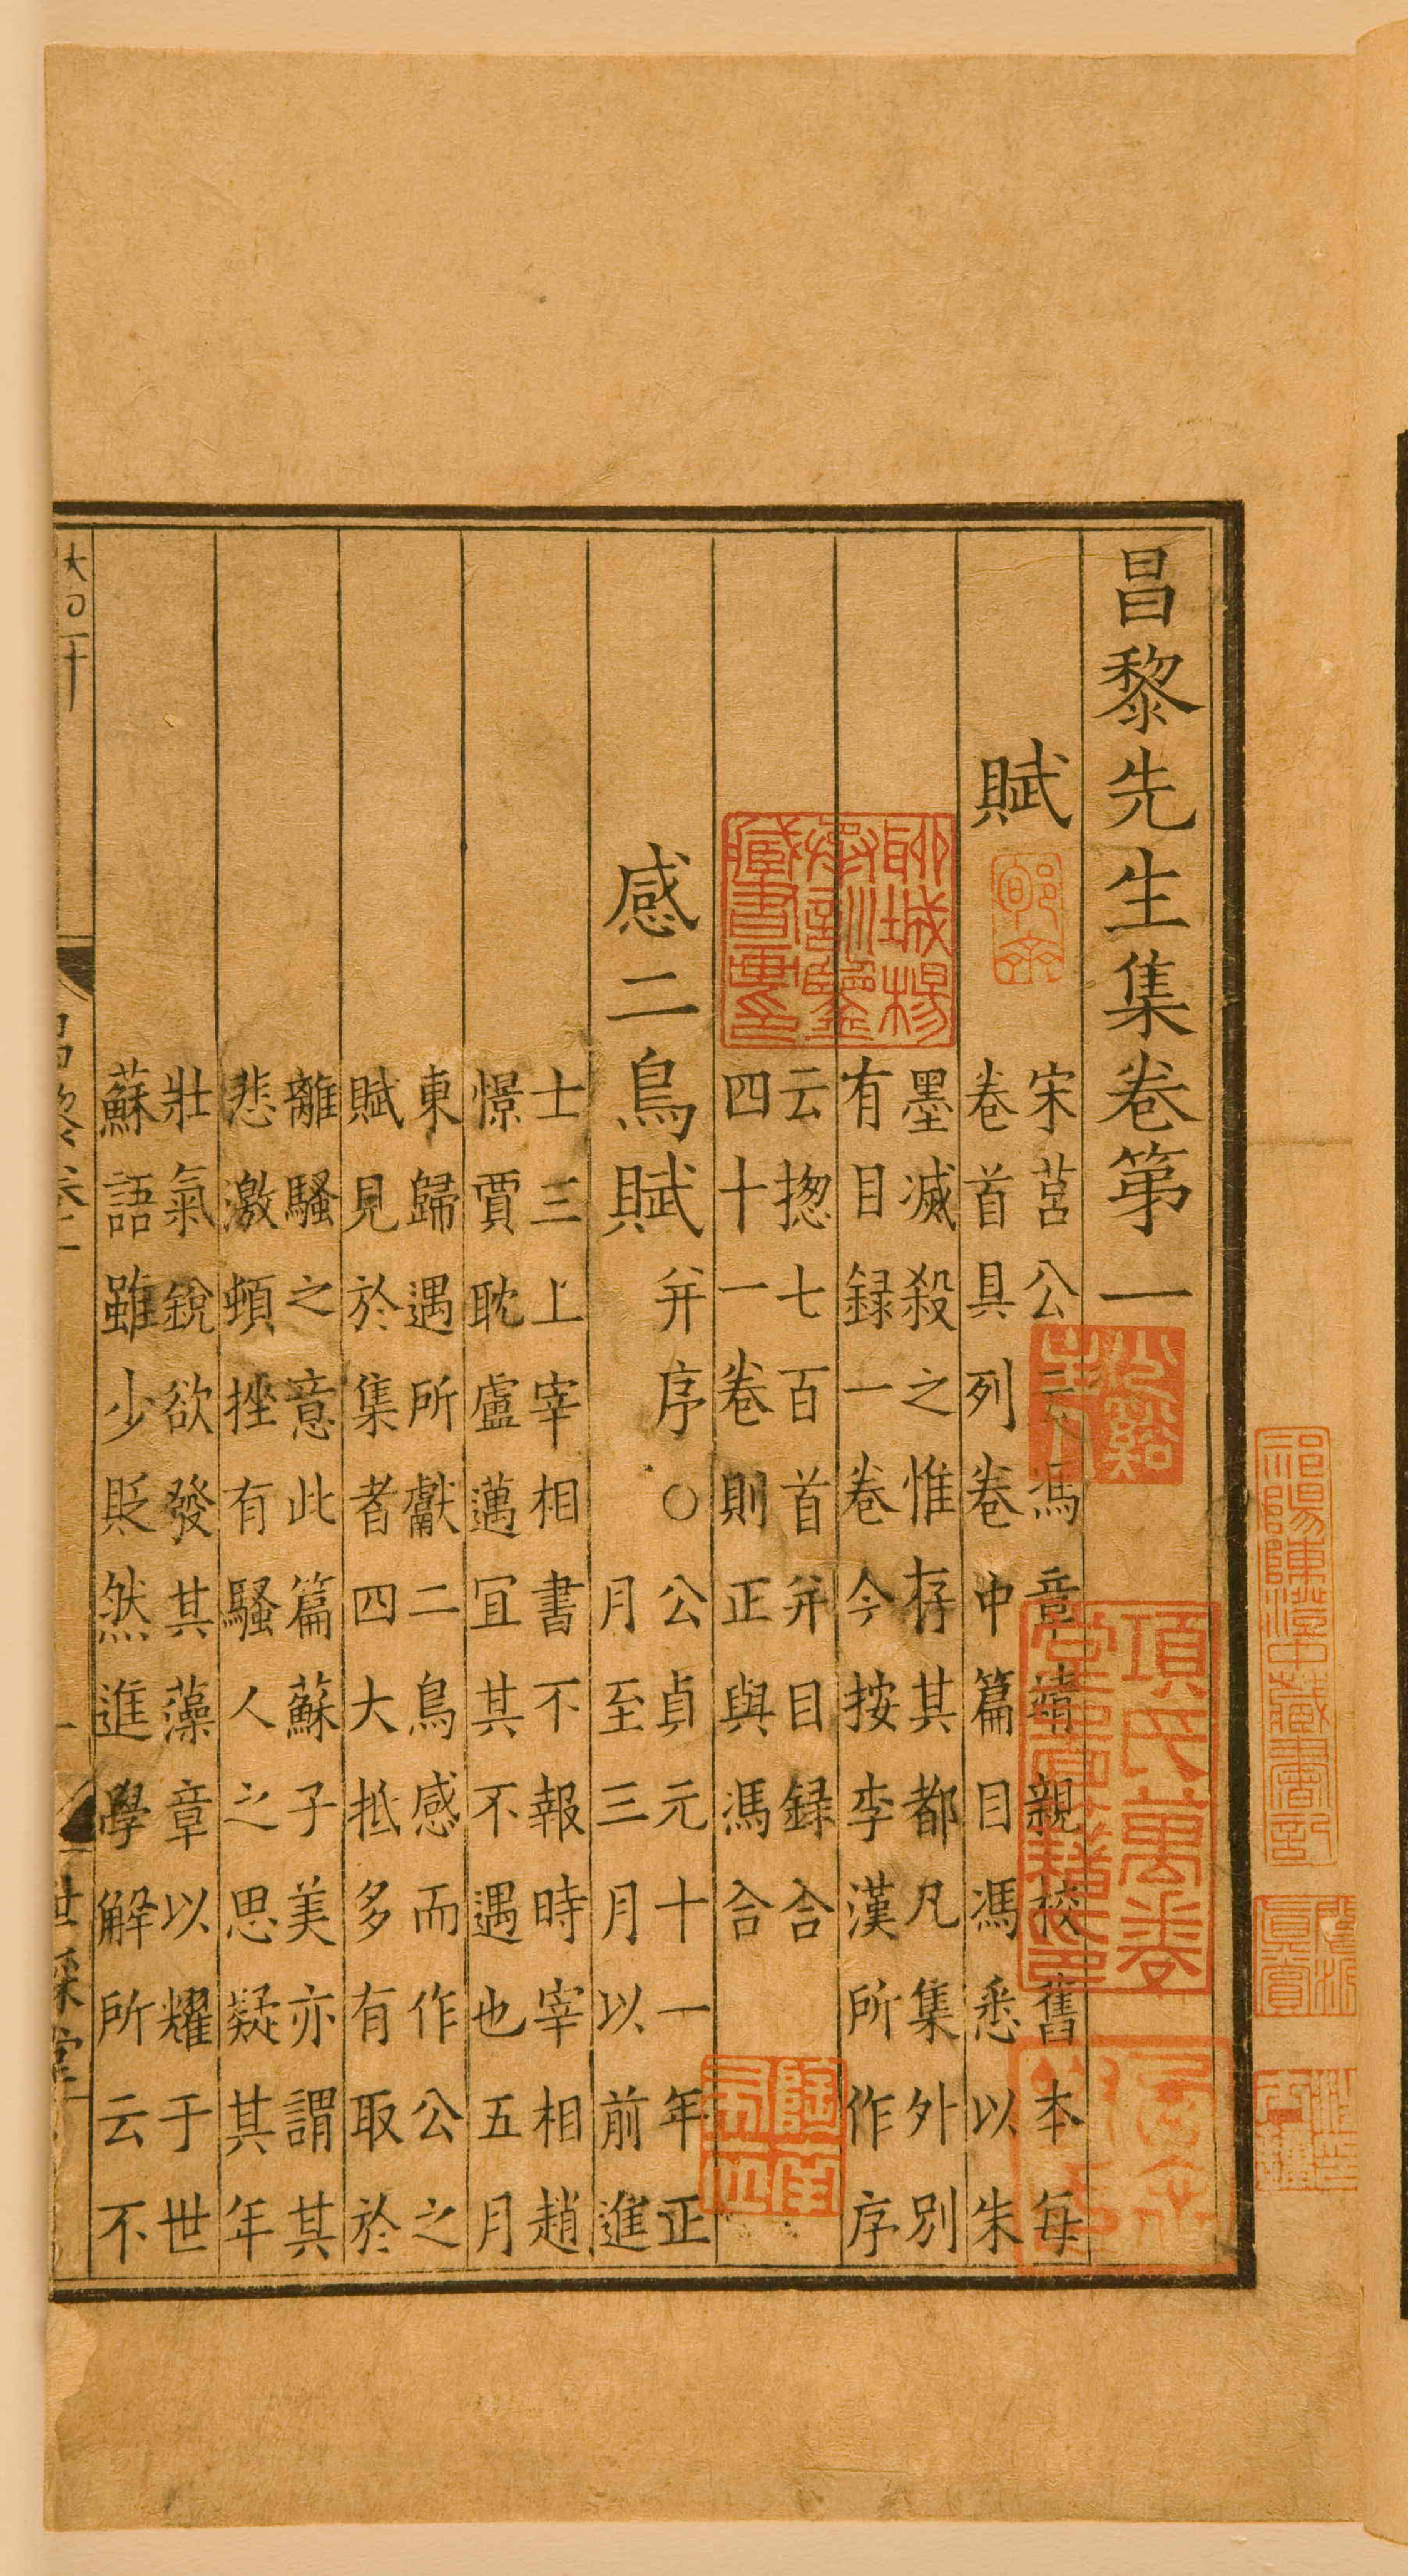 昌黎先生集卷第一
賦
宋莒公云馮章靖親校舊本每
卷首具列卷中篇目馮悉以朱
墨滅殺之惟存其都凡集外別
有目録一卷今按李漢所作序
云揔七百首并目録合
四十一卷則正與馮合
感二鳥賦并序○公貞元十一年正
月至三月以前進
士三上宰相書不報時宰相趙
憬賈耽盧邁宜其不遇也五月
東歸遇所獻二鳥感而作公之
賦見於集者四大抵多有取於
離騷之意此篇蘇子美亦謂其
悲激頓挫有騷人之思疑其年
壯氣銳欲發其藻章以耀于世
蘇語雖少貶然進學解所云不
世綵堂
聊城楊
承訓鑒
藏書畫印
項氏萬卷
堂圖籍印
祁陽陳澄中藏書記